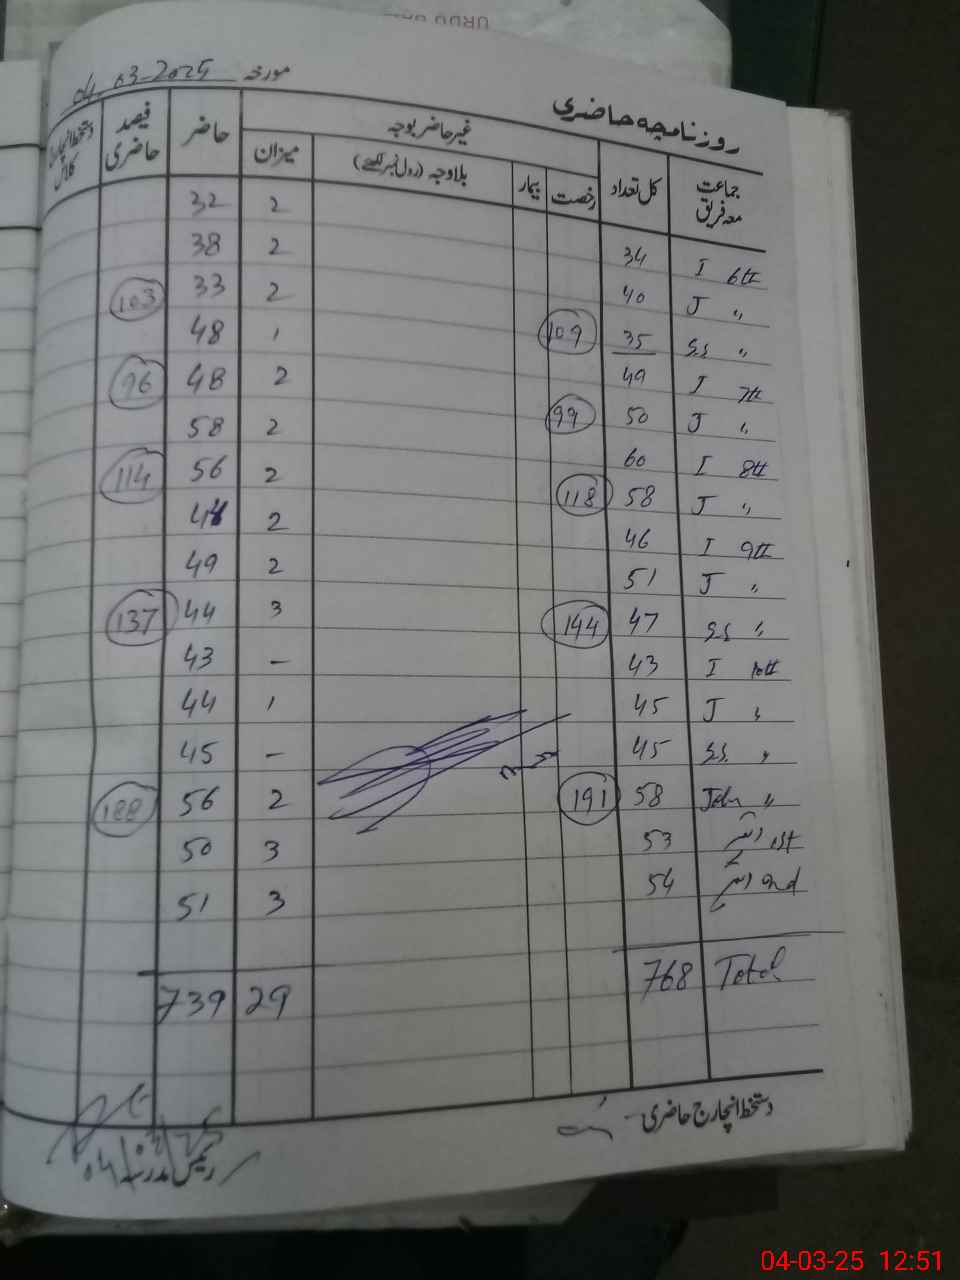 مورخہ 04-03-2025
روزنامچہ حاضری
جماعت معہ فریق | کل تعداد | غیر حاضر بوجہ | حاضر | فیصد حاضری | دستخط انچارج کلاس
رخصت | بیمار | بلاوجہ (رول نمبر لکھئے) | میزان
6th I 34 2 32
" J 40 2 38
" 35 109 2 33 103
7th I 49 1 48
" J 50 99 2 48 96
8th I 60 2 58
" J 58 118 2 56 114
9th I 46 2 44
" J 51 2 49
" 47 144 3 44 137
10th I 43 - 43
" J 45 1 44
" 45 - 45
" 58 191 2 56 188
1st 53 3 50
2nd 54 3 51
Total 768 29 739
دستخط انچارج حاضری
رئیس مدرسہ
04-03-25 12:51